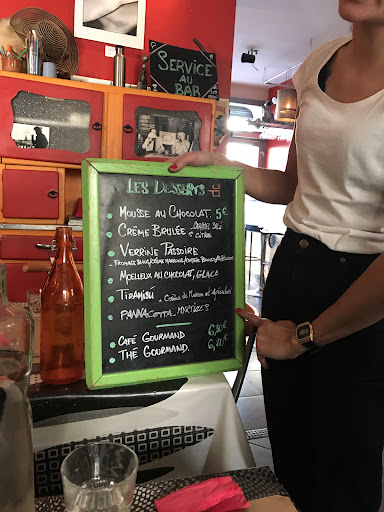 SERVICE
AU
BAR
LES DESSERTS
MOUSSE AU CHOCOLAT. 5€
CRÈME BRULÉE
CITRON
VERRINE PASSOIRE
MOELLEUX AU CHOCOLAT, GLACE
TIRAMISU . Crème de Marron et
PANNACOTTA, MYRTILLES
CAFÉ GOURMAND 6,30€
THÉ GOURMAND. 6,80€